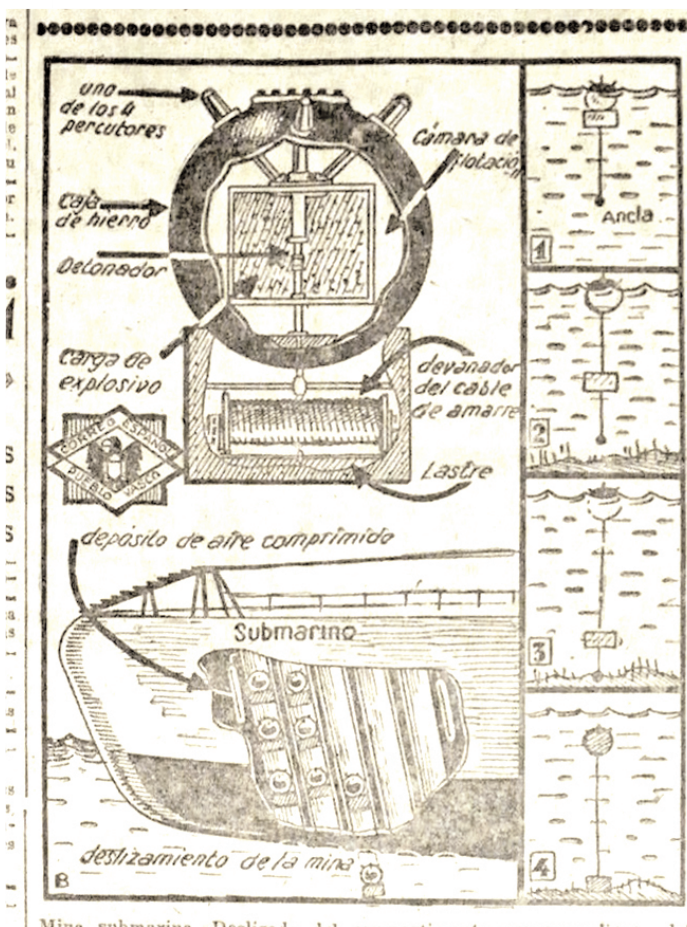 uno
de los 4
percutores
Cámara de
flotació-
n
Caja
de hierro
Detonador
Carga de
explosivo
devanador
del cable
de amarre
Lastre
CORREO ESPAÑOL
PUEBLO VASCO
Ancla
1
2
3
4
depósito de aire comprimido
Submarino
deslizamiento de la mina
B
Mina submarina